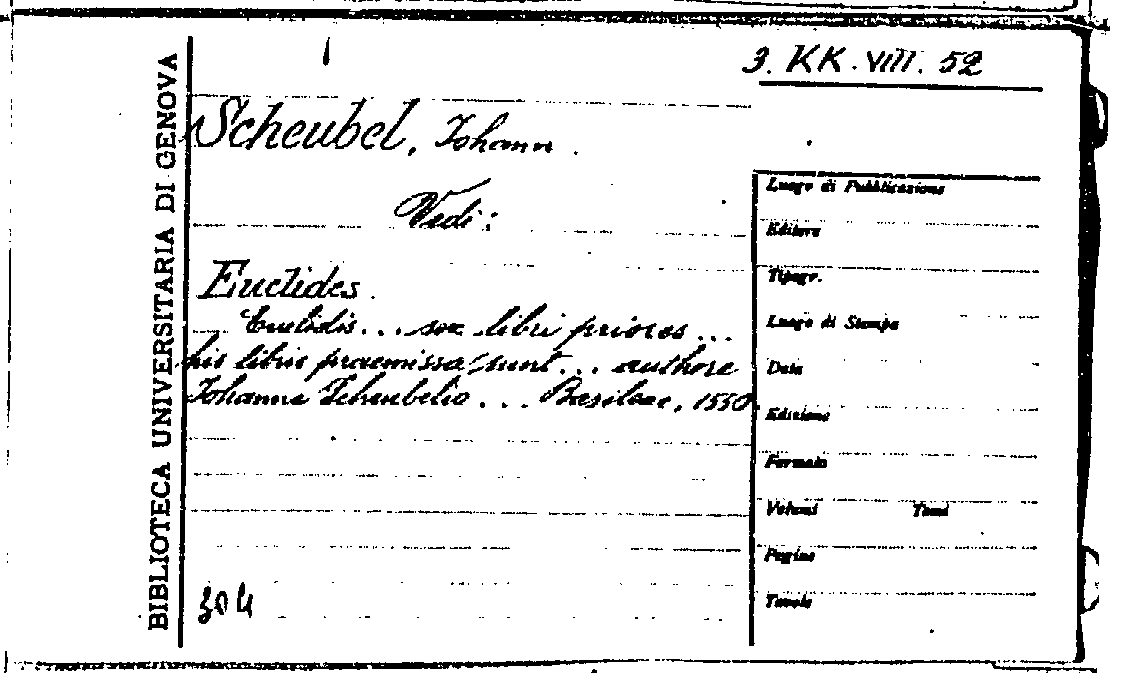 3. KK. VIII. 52
BIBLIOTECA UNIVERSITARIA DI GENOVA
Scheubel, Johann.
Vedi:
Euclides.
Euclidis... sex libri priores...
his libris praemissae sunt... authore
Johanne Scheubelio... Basileae, 1550.
304
Luogo di Pubblicazione
Editore
Tipogr.
Luogo di Stampa
Data
Edizione
Formato
Volumi Tomi
Pagine
Tavole